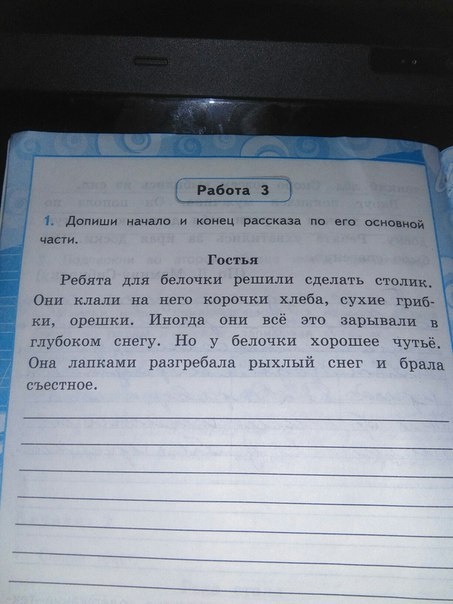 Работа 3
1. Допиши начало и конец рассказа по его основной
части.
Гостья
Ребята для белочки решили сделать столик.
Они клали на него корочки хлеба, сухие гриб-
ки, орешки. Иногда они всё это зарывали в
глубоком снегу. Но у белочки хорошее чутьё.
Она лапками разгребала рыхлый снег и брала
съестное.